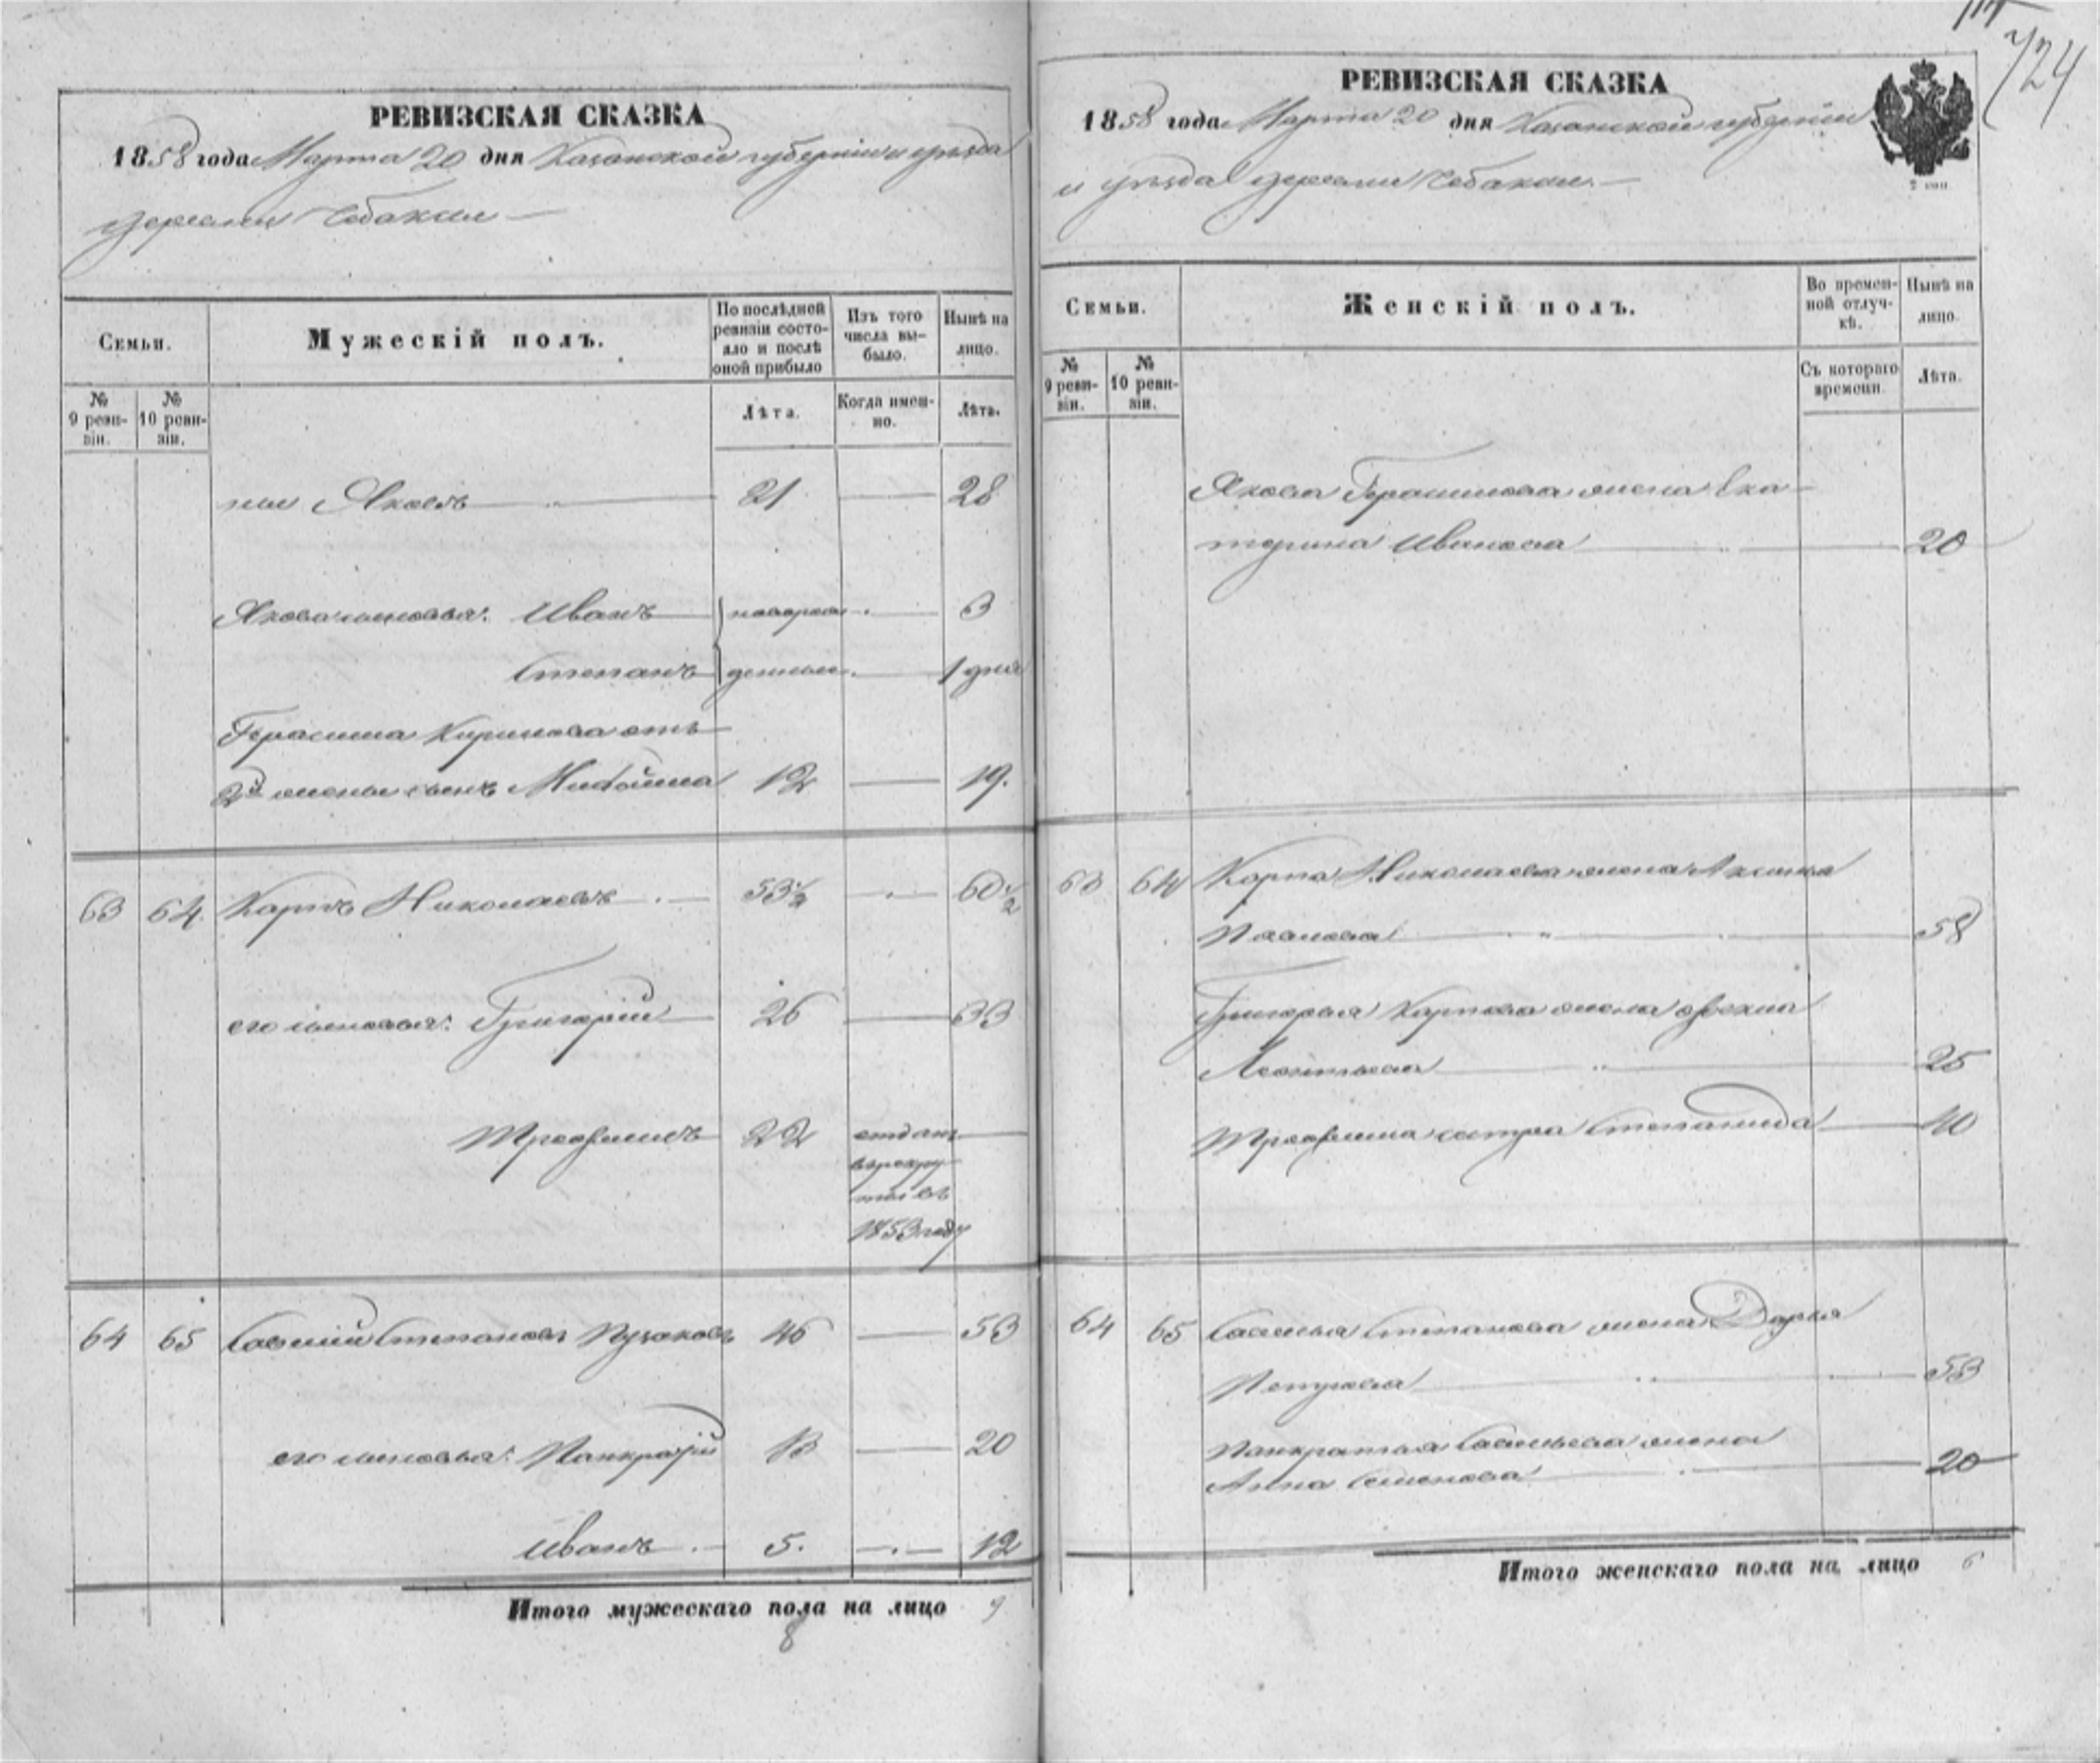 724
РЕВИЗСКАЯ СКАЗКА
1858 года Марта 20 дня Казанской губернiи и уѣзда
деревни Чебакши
Семьи.
Мужескій полъ.
По послѣдней ревизіи состояло и послѣ оной прибыло
Изъ того числа выбыло.
Нынѣ на лицо.
№ 9 ревизіи.
№ 10 ревизіи.
Лѣта.
Когда именно.
Лѣта.
Яковъ 21 28
Якова сыновья: Иванъ новорож 3
Степанъ денные 1 дня
Герасима Кирилова отъ
2й жены сынъ 12 19.
63 64. Карпъ Николаевъ 53½ 60½
его сыновья: Григорій 26 33
Трофимъ 22 отданъ
въ рекру
ты въ
1853 году
64 65 Савелій Степановъ Пузаковъ 46 53
его сыновья: Панкратій 13 20
Иванъ 5. 12
Итого мужескаго пола на лицо 9
8
РЕВИЗСКАЯ СКАЗКА
1858 года Марта 20 дня Казанской губерніи
и уѣзда деревни Чебакши
2 коп
Семьи.
Женскій полъ.
Во временной отлучкѣ.
Нынѣ на лицо.
№ 9 ревизіи.
№ 10 ревизіи.
Съ котораго времени.
Лѣта.
Якова Герасимова жена Ека-
терина Иванова 20
63 64 Карпа Николаева жена Аксинья
Павлова 58
Григорья Карпова жена Фекла
Леонтьева 25
Трофима сестра Степанида 40
64 65 Савелья Степанова жена Дарья
Петрова 53
Панкратья Савельева жена
Анна Семенова 20
Итого женскаго пола на лицо 6